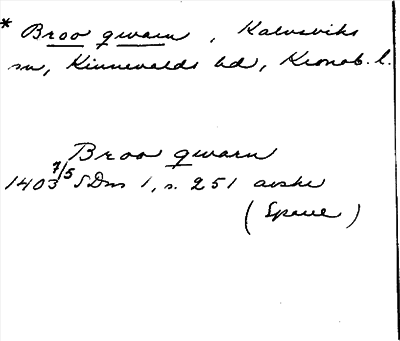 * Broo qwarn, Kalvsviks
sn, Kinnevalds hd, Kronob. l.
Broo qwarn
1403 7/5 SDns 1, s. 251 avskr
(